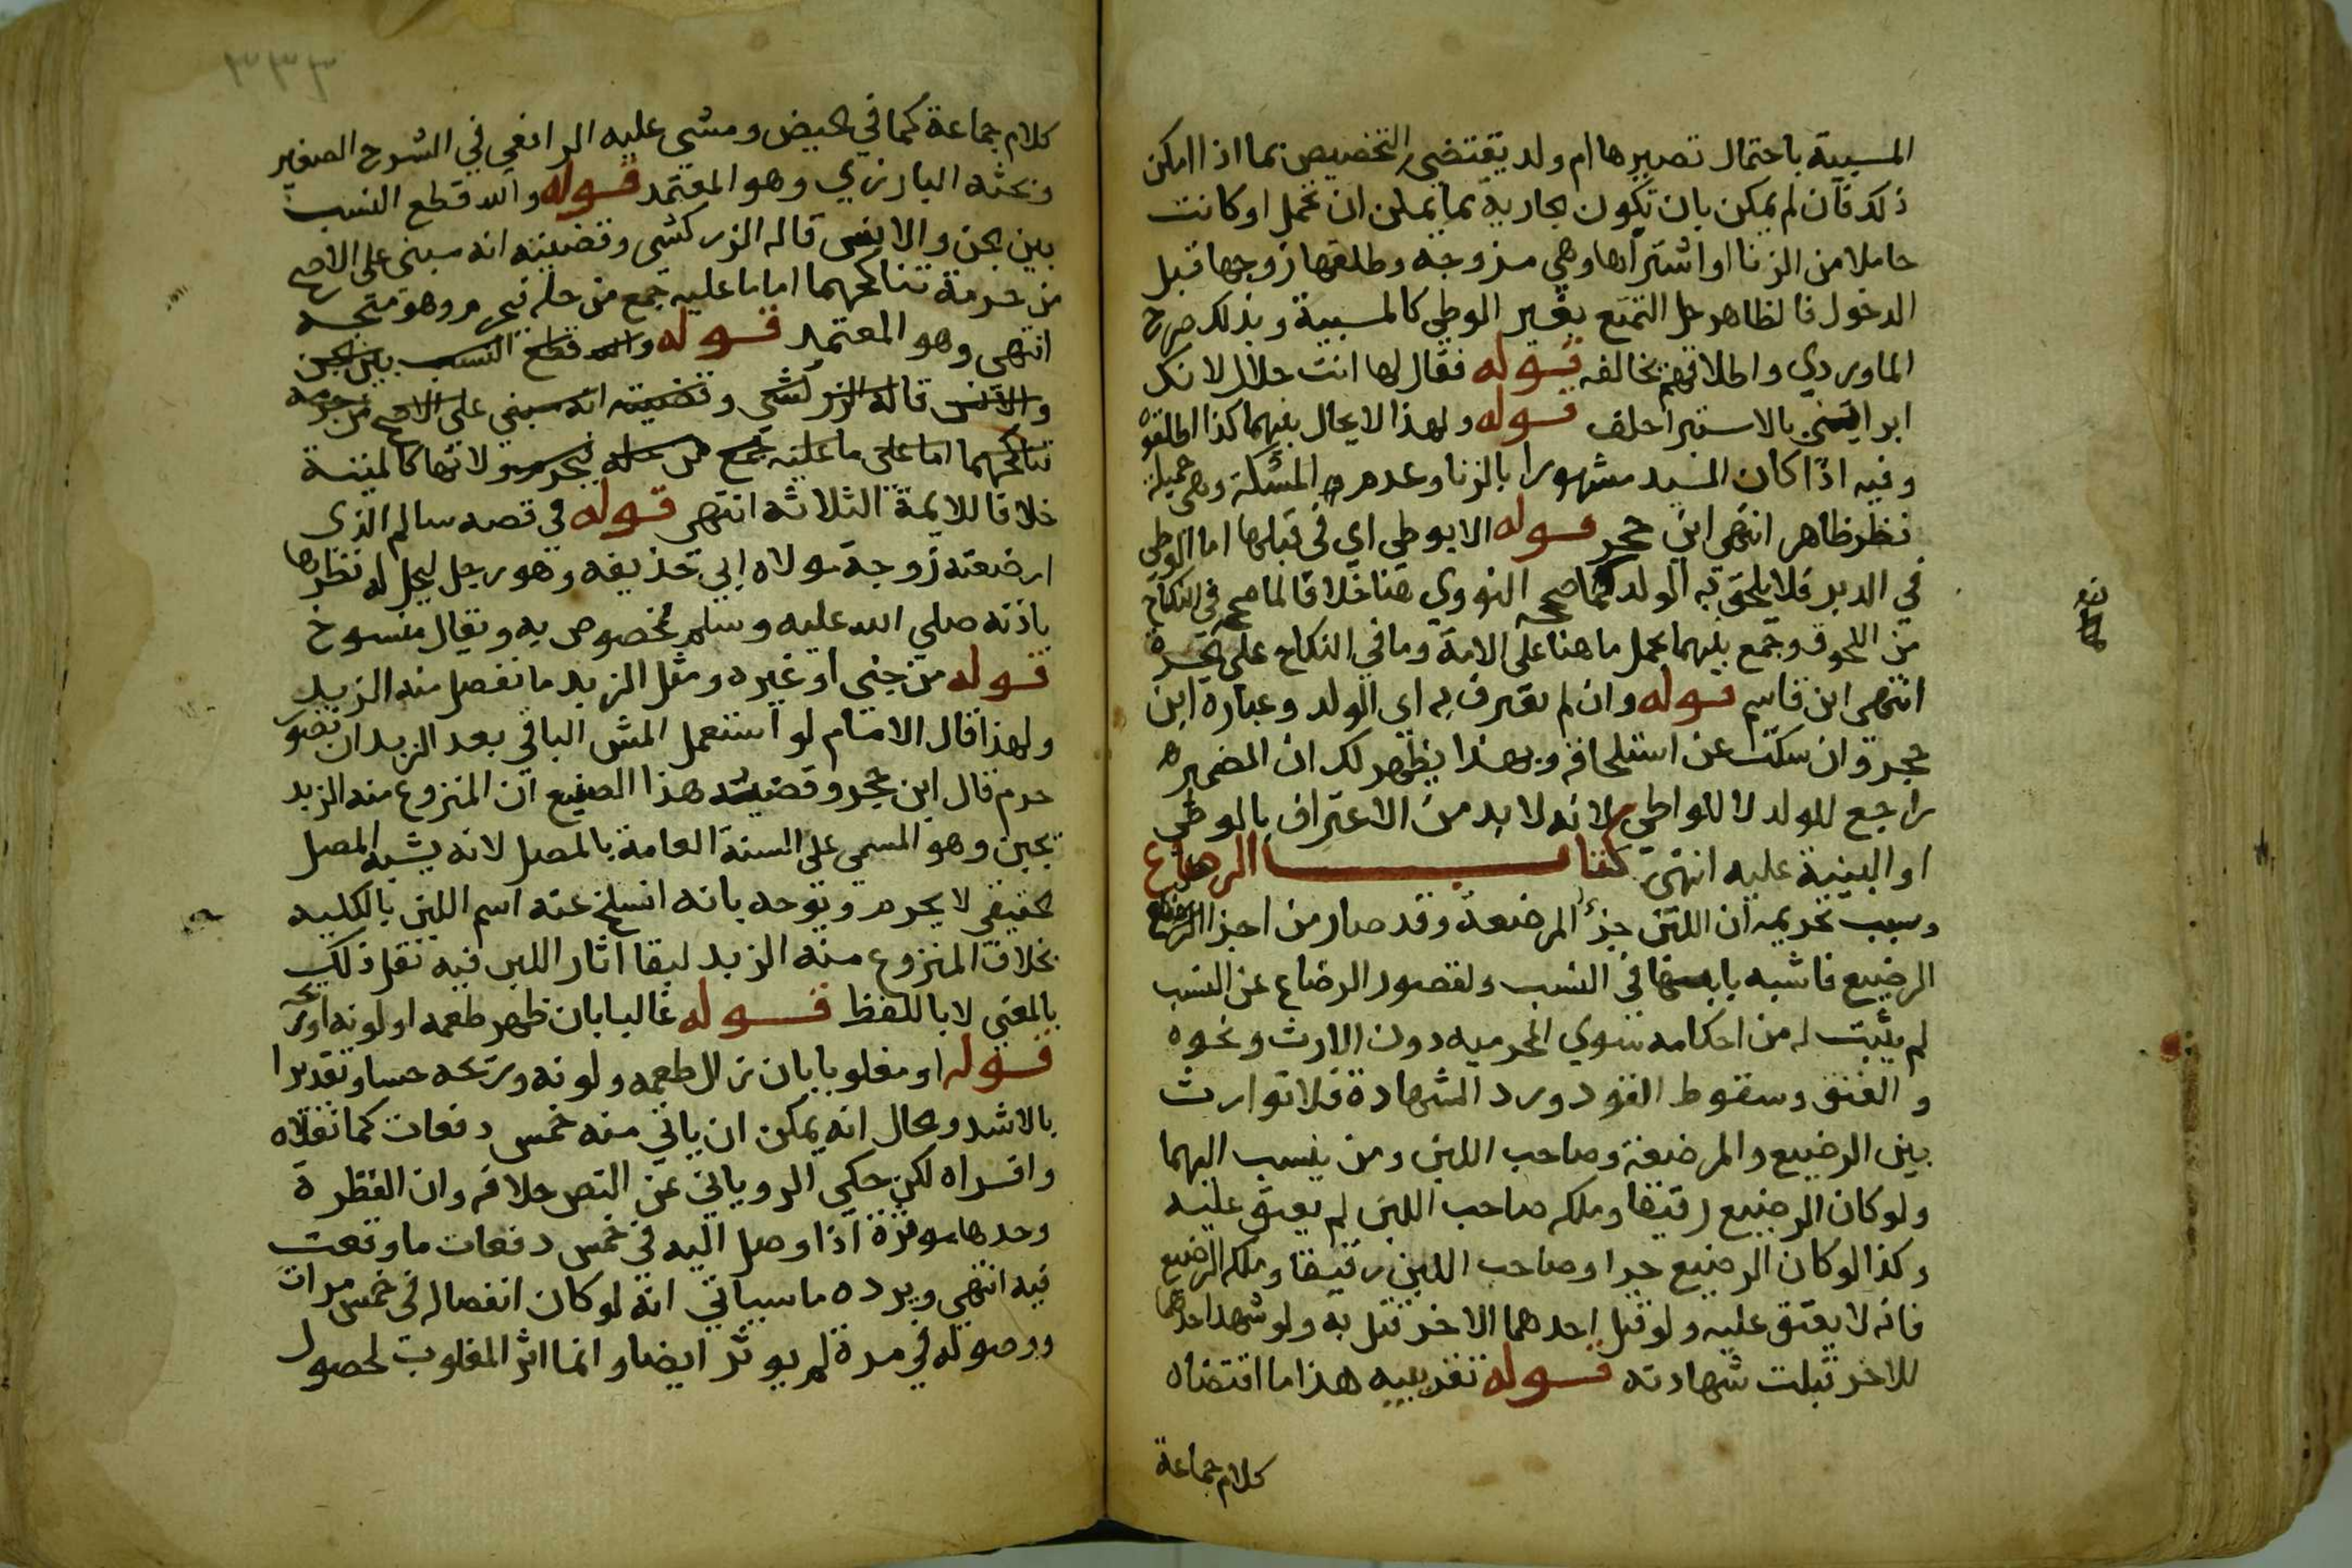 المسبية باحتمال تصييرها ام ولد يقتضي التخصيص بما اذا امكن
ذلك فان لم يمكن بان تكون الجارية مما يمكن ان تحمل او كانت
حاملا من الزنا او اشتراها وهي مزوجه وطلقها زوجها قبل
الدخول فالظاهر حل التمتع بغير الوطي كالمسبية وبذلك صرح
الماوردي واطلاقهم يخالفه قوله فقال لها انت حلال لانك
بالاستبرا حلف قوله ولهذا لا يحال بينهما كذا اطلقوه
وفيه اذا كان السيد مشهورا بالزنا وعدم المسكة وهي جميلة
نظر ظاهر انتهي ابن حجر قوله الا بوطي اي في قبلها اما الوطي
في الدبر فلا يلحق به الولد كما صححه النووي هنا خلافا لما صححه في النكاح
من اللحوق وجمع بينهما بحمل ما هنا على الامة وما في النكاح على الحرة
انتهي ابن قاسم قوله وان لم يعترف به اي الولد وعبارة ابن
حجر وان سكت عن استلحاقه وبهذا يظهر لك ان الضمير
راجع للولد لا للواطي لانه لا بد من الاعتراف بالوطي
او البينة عليه انتهى كتاب الرضاع
وسبب تحريمه ان اللبن جزء المرضعة وقد صار من اجزا
الرضيع فاشبه في النسب ولقصور الرضاع عن النسب
لم يثبت له من احكامه سوي المحرميه دون الارث ونحوه
والعتق وسقوط القود ورد الشهادة فلا توارث
بين الرضيع والمرضعة وصاحب اللبن ومن ينسب اليهما
ولو كان الرضيع رقيقا وملكه صاحب اللبن لم يعتق عليه
وكذا لو كان الرضيع حرا وصاحب اللبن رقيقا وملكه الرضيع
فانه لا يعتق عليه ولو قتل احدهما الاخر قتل به ولو شهد احدهما
للاخر قبلت شهادته قوله تقريبيه هذا ما اقتضاه
كلام جماعة
٣٣٣
كلام جماعة كما في الحيض ومشى عليه الرافعي في الشرح الصغير
وبحثه البارزي وهو المعتمد قوله والله قطع النسب
بين الجن والانس قاله الزركشي وقضيته انه مبني على الاصح
من حرمة تناكحهما اما ما عليه جمع من حله فيحرم وهو متجه
انتهى وهو المعتمد قوله والله قطع النسب بين الجن
والانس قاله الزركشي وقضيته انه مبني على الاصح من حرمة
تناكحهما اما على ما عليه جمع من حله فيحرم ولانها كالميتة
خلافا للايمة الثلاثه انتهى قوله في قصه سالم الذي
ارضعته زوجة مولاه ابي حذيفه وهو رجل ليحل له نظرها
باذنه صلي الله عليه وسلم مخصوص به ويقال منسوخ
قوله من جني او غيره ومثل الزبد ما نفصل منه الزبد
ولهذا قال الامام لو استعمل المش الباقي بعد الزبد
حرم قال ابن حجر وقضية هذا الصنيع ان المنزوع منه الزبد
بجبن وهو المسمى على السنة العامة بالمصل لانه يشبه المصل
الحقيقي لا يحرم ويوجه بانه انسلخ عنه اسم اللبن بالكليه
بخلاف المنزوع منه الزبد لبقا اثار اللبن فيه نقل ذلك
بالمعني لا باللفظ قوله غالبا بان ظهر طعمه او لونه او ريحه
قوله او مغلوبا بان زال طعمه ولونه وريحه حسا وتقديرا
بالاشد وبحال انه يمكن ان ياتي منه خمس دفعات كما نقلاه
واقراه لكن حكي الروياني عن النص خلافه وان القطرة
وحدها موثرة اذا وصل اليه في خمس دفعات ما وقعت
فيه انتهي ويرده ما سياتي انه لو كان انفصاله في خمس مرات
ووصوله في مرة لم يوثر ايضا وانما اثر المغلوب لحصول